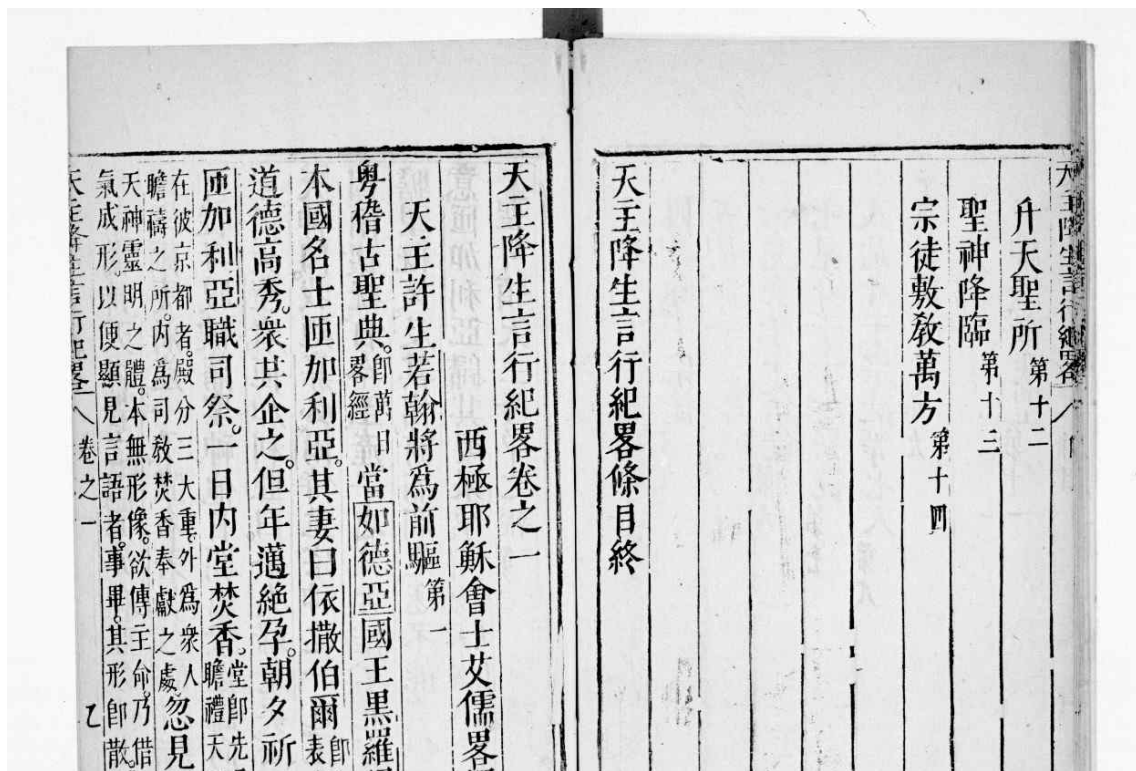 天主降生言行紀畧
升天聖所 第十二
聖神降臨 第十三
宗徒敷敎萬方 第十四
天主降生言行紀畧條目終
天主降生言行紀畧卷之一
西極耶穌會士艾儒畧
天主許生若翰將爲前驅 第一
粤稽古聖典。卽萬日畧經當如德亞國王黑羅
本國名士匝加利亞。其妻曰依撒伯爾 卽表
道德高秀。衆共企之。但年邁絶孕。朝夕祈
匝加利亞職司祭。一日内堂焚香。堂卽先
瞻禮天
在彼京都者。殿分三大重。外爲衆人
瞻禱之所。内爲司敎焚香奉獻之處。忽見
天神靈明之體。本無形像。欲傳主命。乃借
氣成形。以便顯見言語者。事畢。其形卽散。
天主降生言行紀畧 卷之一 乙